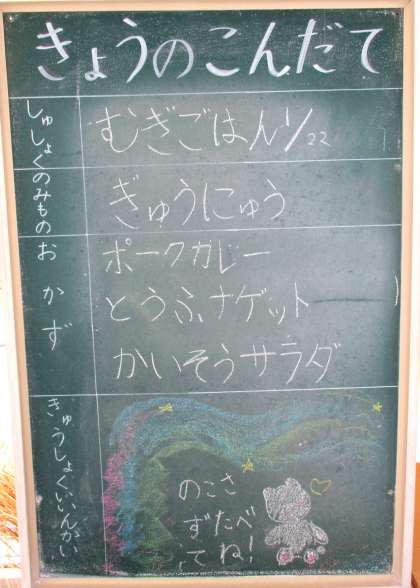 きょうのこんだて
しゅしょく
むぎごはん 1/22
のみもの
ぎゅうにゅう
おかず
ポークカレー
とうふナゲット
かいそうサラダ
きゅうしょくいいんかい
のこさ
ずたべ
てね!